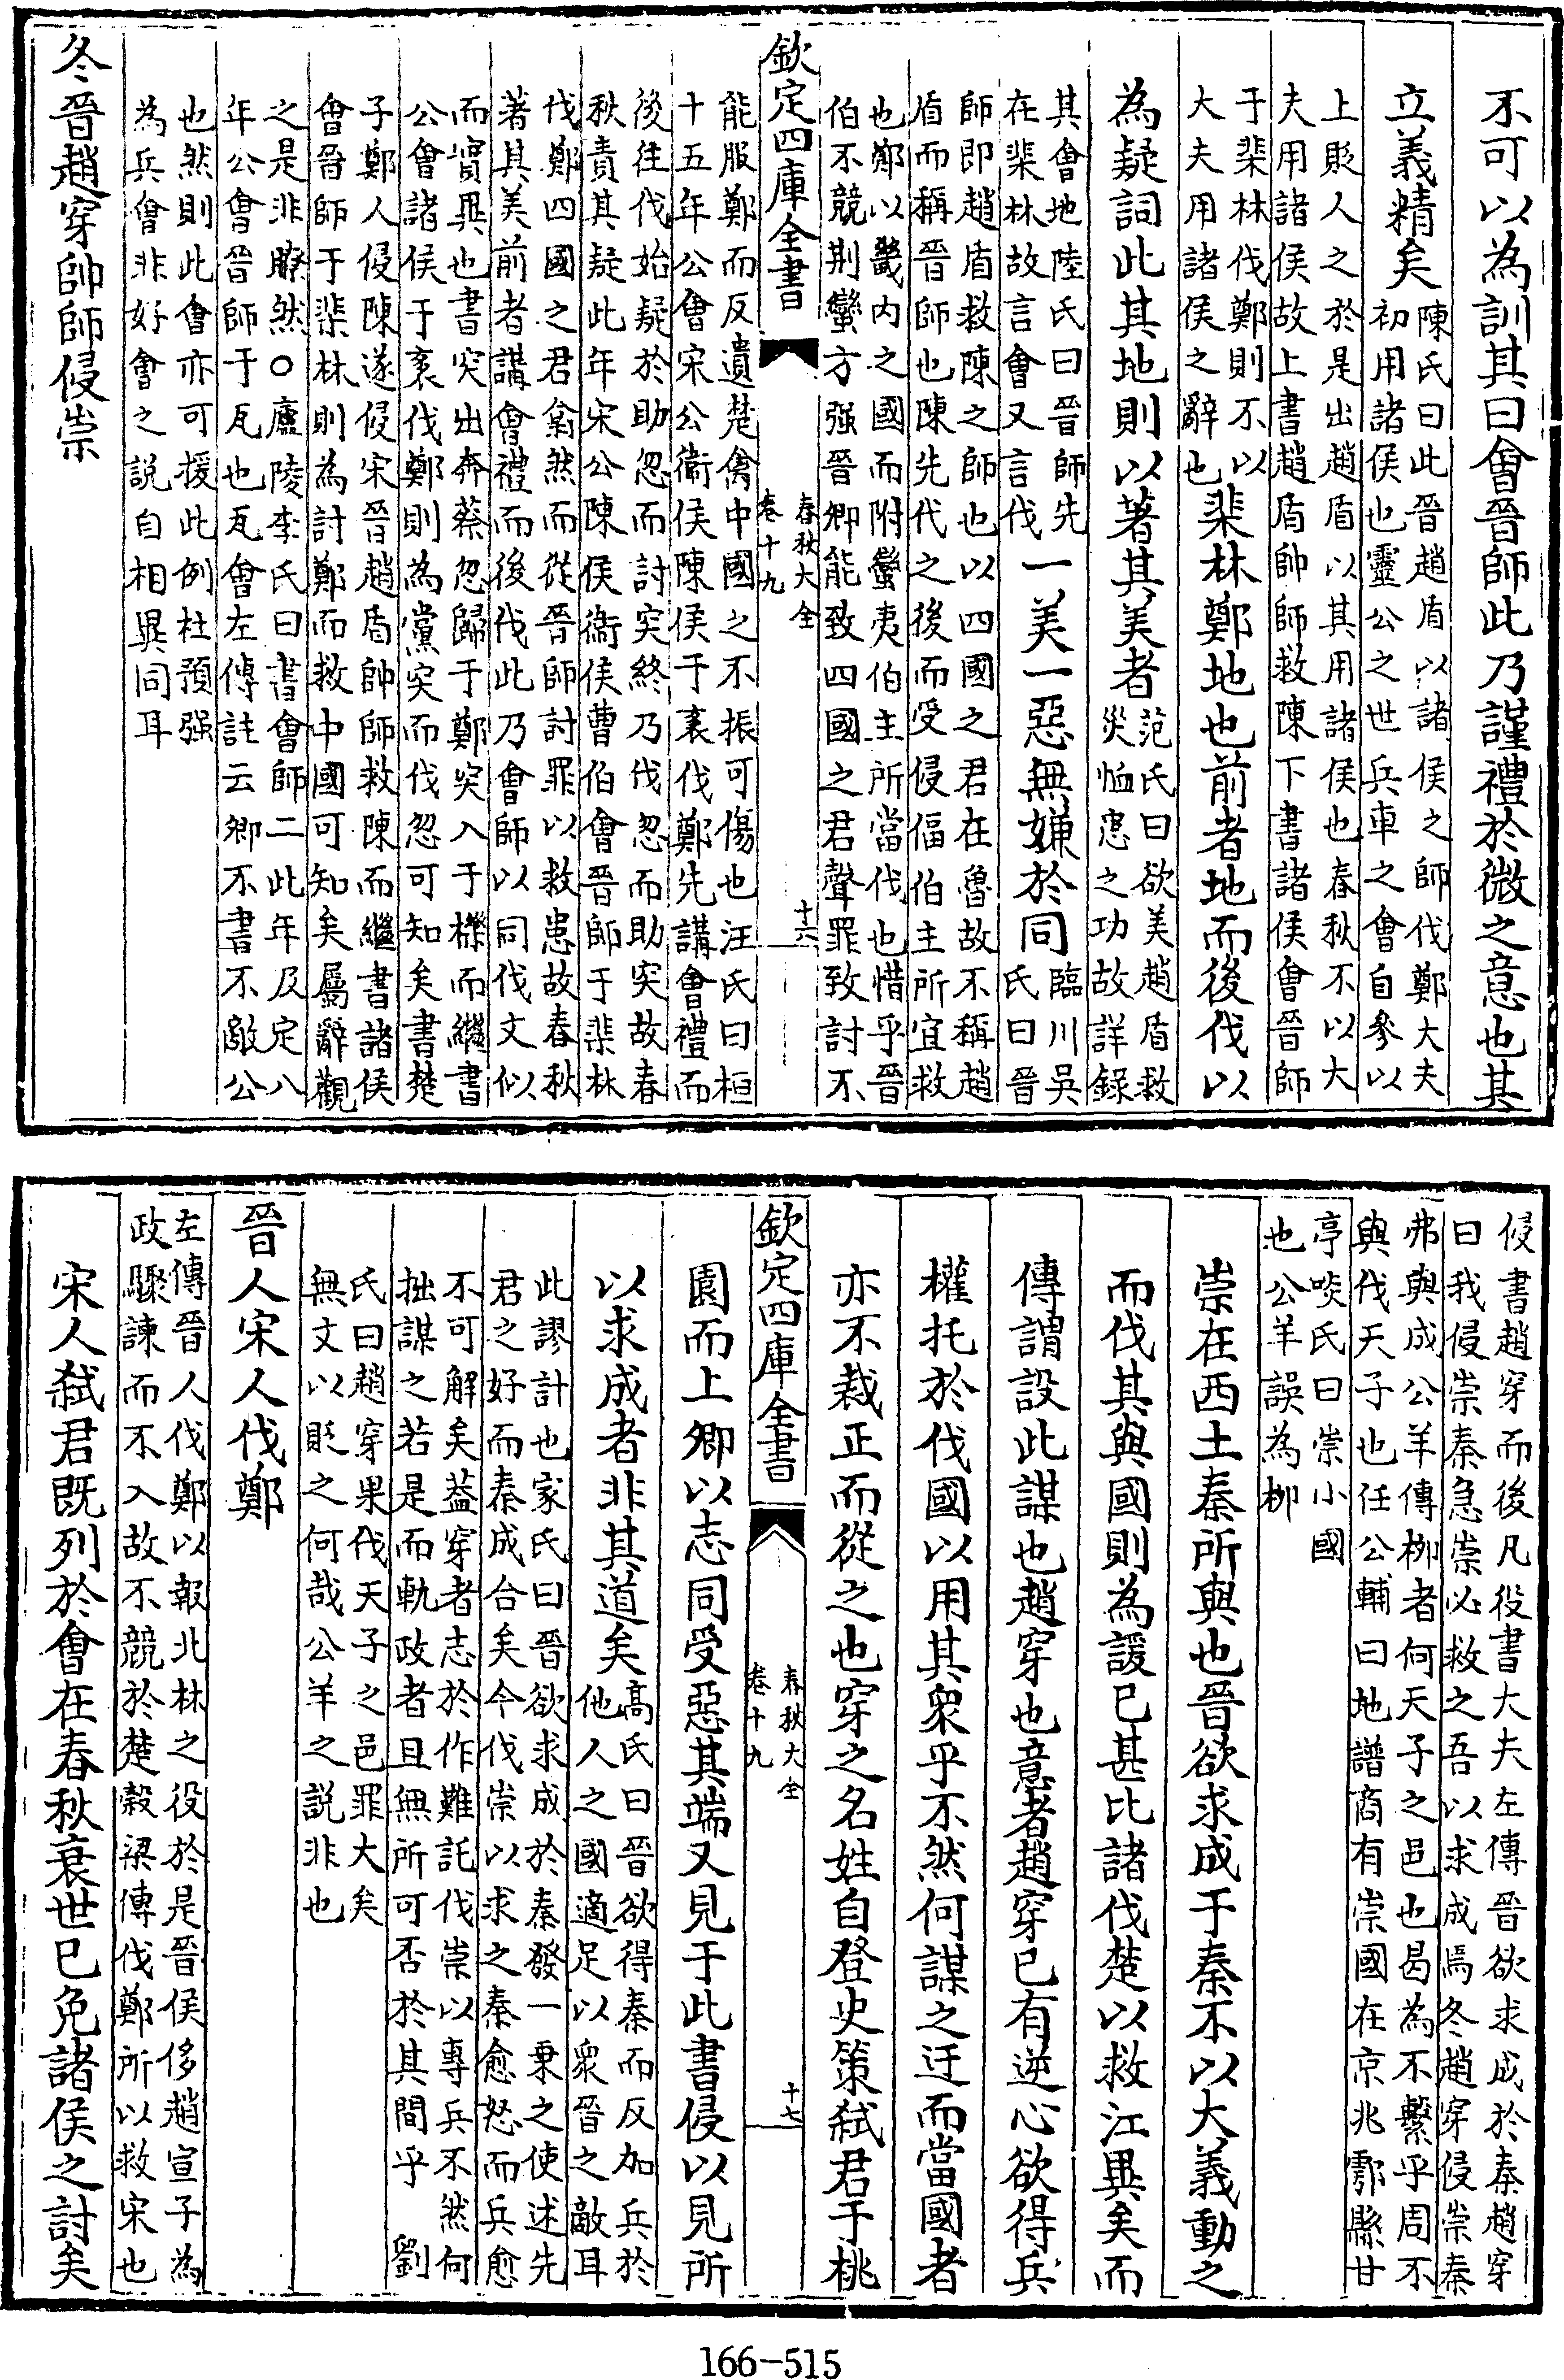 不可以為訓其曰會晉師此乃謹禮於微之意也其
立義精矣陳氏曰此晉趙盾以諸侯之師伐鄭大夫
初用諸侯也靈公之世兵車之會自參以
上貶人之於是出趙盾以其用諸侯也春秋不以大
夫用諸侯故上書趙盾帥師救陳下書諸侯會晉師
于棐林伐鄭則不以
大夫用諸侯之辭也棐林鄭地也前者地而後伐以
為疑詞此其地則以著其美者范氏曰欲美趙盾救
災恤患之功故詳錄
其會地陸氏曰晉師先
在棐林故言會又言伐一美一惡無嫌於同臨川吳
氏曰晉
師即趙盾救陳之師也以四國之君在魯故不稱趙
盾而稱晉師也陳先代之後而受侵偪伯主所宜救
也鄭以畿内之國而附蠻夷伯主所當伐也惜乎晉
伯不競荆蠻方强晉卿能致四國之君聲罪致討不
欽定四庫全書
春秋大全
卷十九
十六
能服鄭而反遺楚禽中國之不振可傷也汪氏曰桓
十五年公會宋公衞侯陳侯于袲伐鄭先講會禮而
後往伐始疑於助忽而討突終乃伐忽而助突故春
秋責其疑此年宋公陳侯衞侯曹伯會晉師于棐林
伐鄭四國之君翕然而從晉師討罪以救患故春秋
著其美前者講會禮而後伐此乃會師以同伐文似
而實異也書突出奔蔡忽歸于鄭突入于櫟而繼書
公會諸侯于袲伐鄭則為黨突而伐忽可知矣書楚
子鄭人侵陳遂侵宋晉趙盾帥師救陳而繼書諸侯
會晉師于棐林則為討鄭而救中國可知矣屬辭觀
之是非瞭然○廬陵李氏曰書會師二此年及定八
年公會晉師于瓦也瓦會左傳註云卿不書不敵公
也然則此會亦可援此例杜預强
為兵會非好會之說自相異同耳
冬晉趙穿帥師侵崇
侵書趙穿而後凡役書大夫左傳晉欲求成於秦趙穿
曰我侵崇秦急崇必救之吾以求成焉冬趙穿侵崇秦
弗與成公羊傳柳者何天子之邑也曷為不繫乎周不
與伐天子也任公輔曰地譜商有崇國在京兆鄠縣甘
亭啖氏曰崇小國
也公羊誤為柳
崇在西土秦所與也晉欲求成于秦不以大義動之
而伐其與國則為諼已甚比諸伐楚以救江異矣而
傳謂設此謀也趙穿也意者趙穿已有逆心欲得兵
權托於伐國以用其衆乎不然何謀之迂而當國者
亦不裁正而從之也穿之名姓自登史策弑君于桃
欽定四庫全書
春秋大全
卷十九
十七
園而上卿以志同受惡其端又見于此書侵以見所
以求成者非其道矣高氏曰晉欲得秦而反加兵於
他人之國適足以衆晉之敵耳
此謬計也家氏曰晉欲求成於秦發一乗之使述先
君之好而秦成合矣今伐崇以求之秦愈怒而兵愈
不可解矣葢穿者志於作難託伐崇以專兵不然何
拙謀之若是而軌政者且無所可否於其間乎 劉
氏曰趙穿果伐天子之邑罪大矣
無文以貶之何哉公羊之説非也
晉人宋人伐鄭
左傳晉人伐鄭以報北林之役於是晉侯侈趙宣子為
政驟諫而不入故不競於楚榖梁傳伐鄭所以救宋也
宋人弑君既列於會在春秋衰世已免諸侯之討矣
166-515